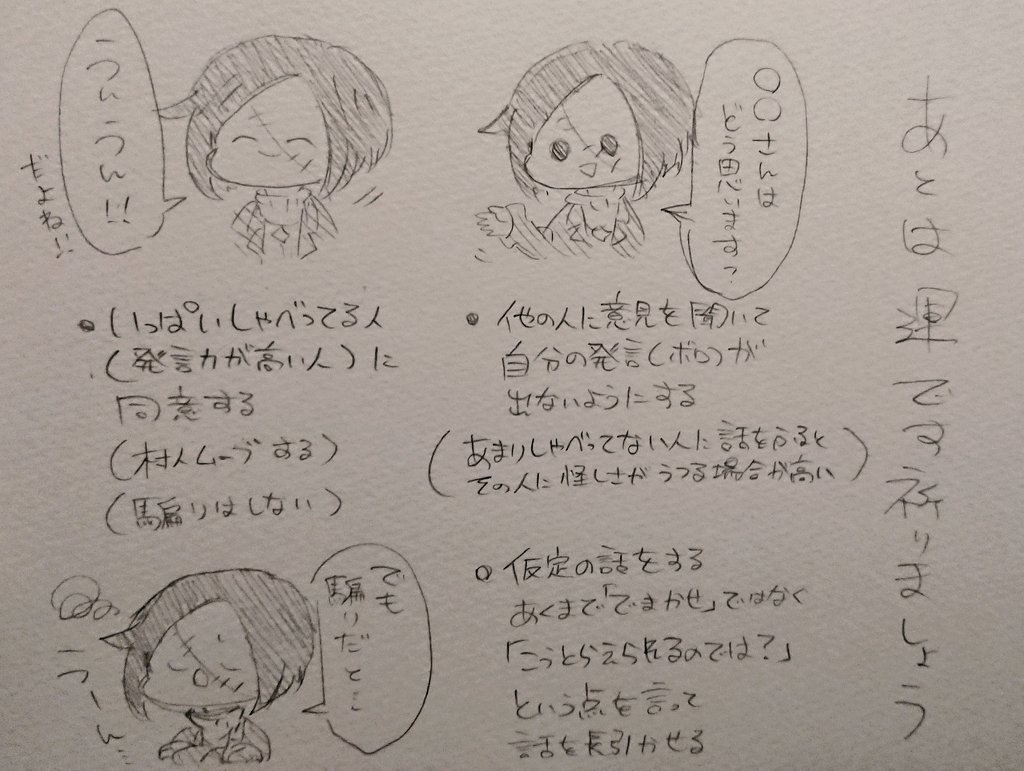 あとは運です祈りましょう
〇〇さんは
どう思います?
・他の人に意見を聞いて
自分の発言(ボロ)が
出ないようにする
(あまりしゃべってない人に話をふると
その人に怪しさがうつる場合が高い)
うんうん!!
だよね!!
・いっぱいしゃべってる人
(発言力が高い人)に
同意する
(村人ムーブする)
(騙りはしない)
○仮定の話をする
あくまで「でまかせ」ではなく
「こうとらえられるのでは?」
という点を言って
話を長引かせる
でも
騙りだと…
うーん…